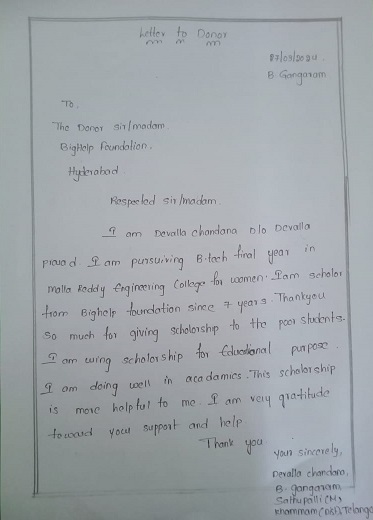 Letter to Donor
27/09/2024
B. Gangaram
To,
The Donor sir/madam.
BigHelp Foundation,
Hyderabad.
Respected sir/madam.
I am Devalla chandana D/o Devalla
prasad. I am pursuiving B.tech final year in
Malla Reddy Engineering College for women. I am scholar
from BigHelp foundation since 7 years. Thankyou
so much for giving scholorship to the poor students.
I am using scholorship for Educational purpose.
I am doing well in acadamics. This scholorship
is more helpful to me. I am very gratitude
toward your support and help.
Thank you
your sincerely,
Devalla chandana,
B. Gangaram
Sathupalli(M),
Khammam(Dist), Telanga